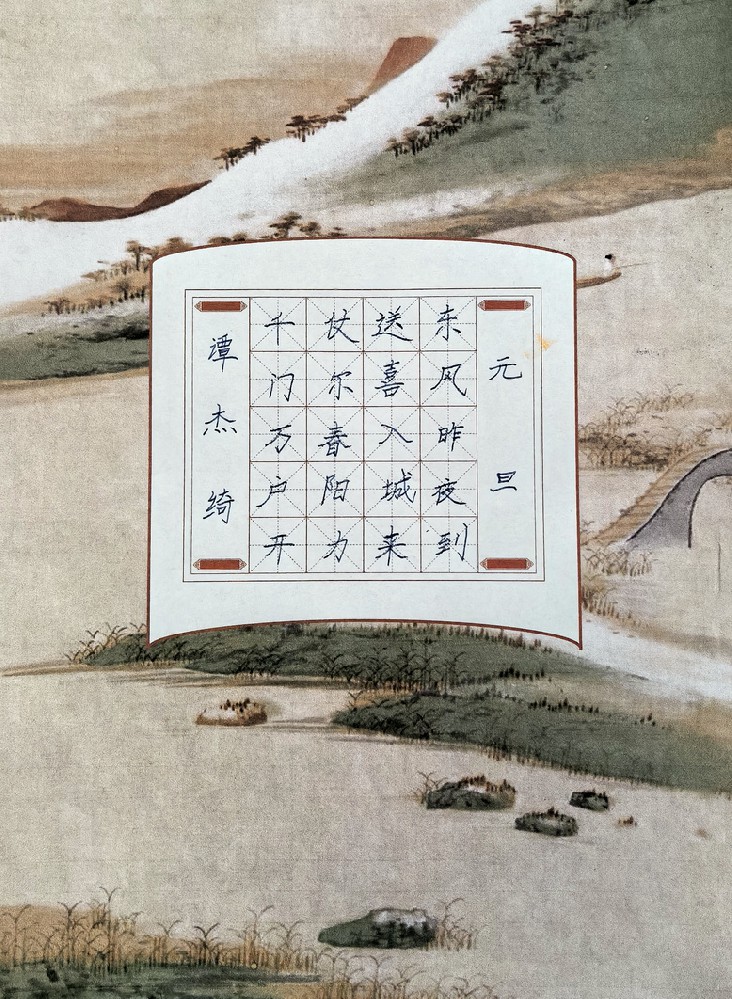 元旦
东风昨夜到
送喜入城来
仗尔春阳力
千门万户开
谭杰绮